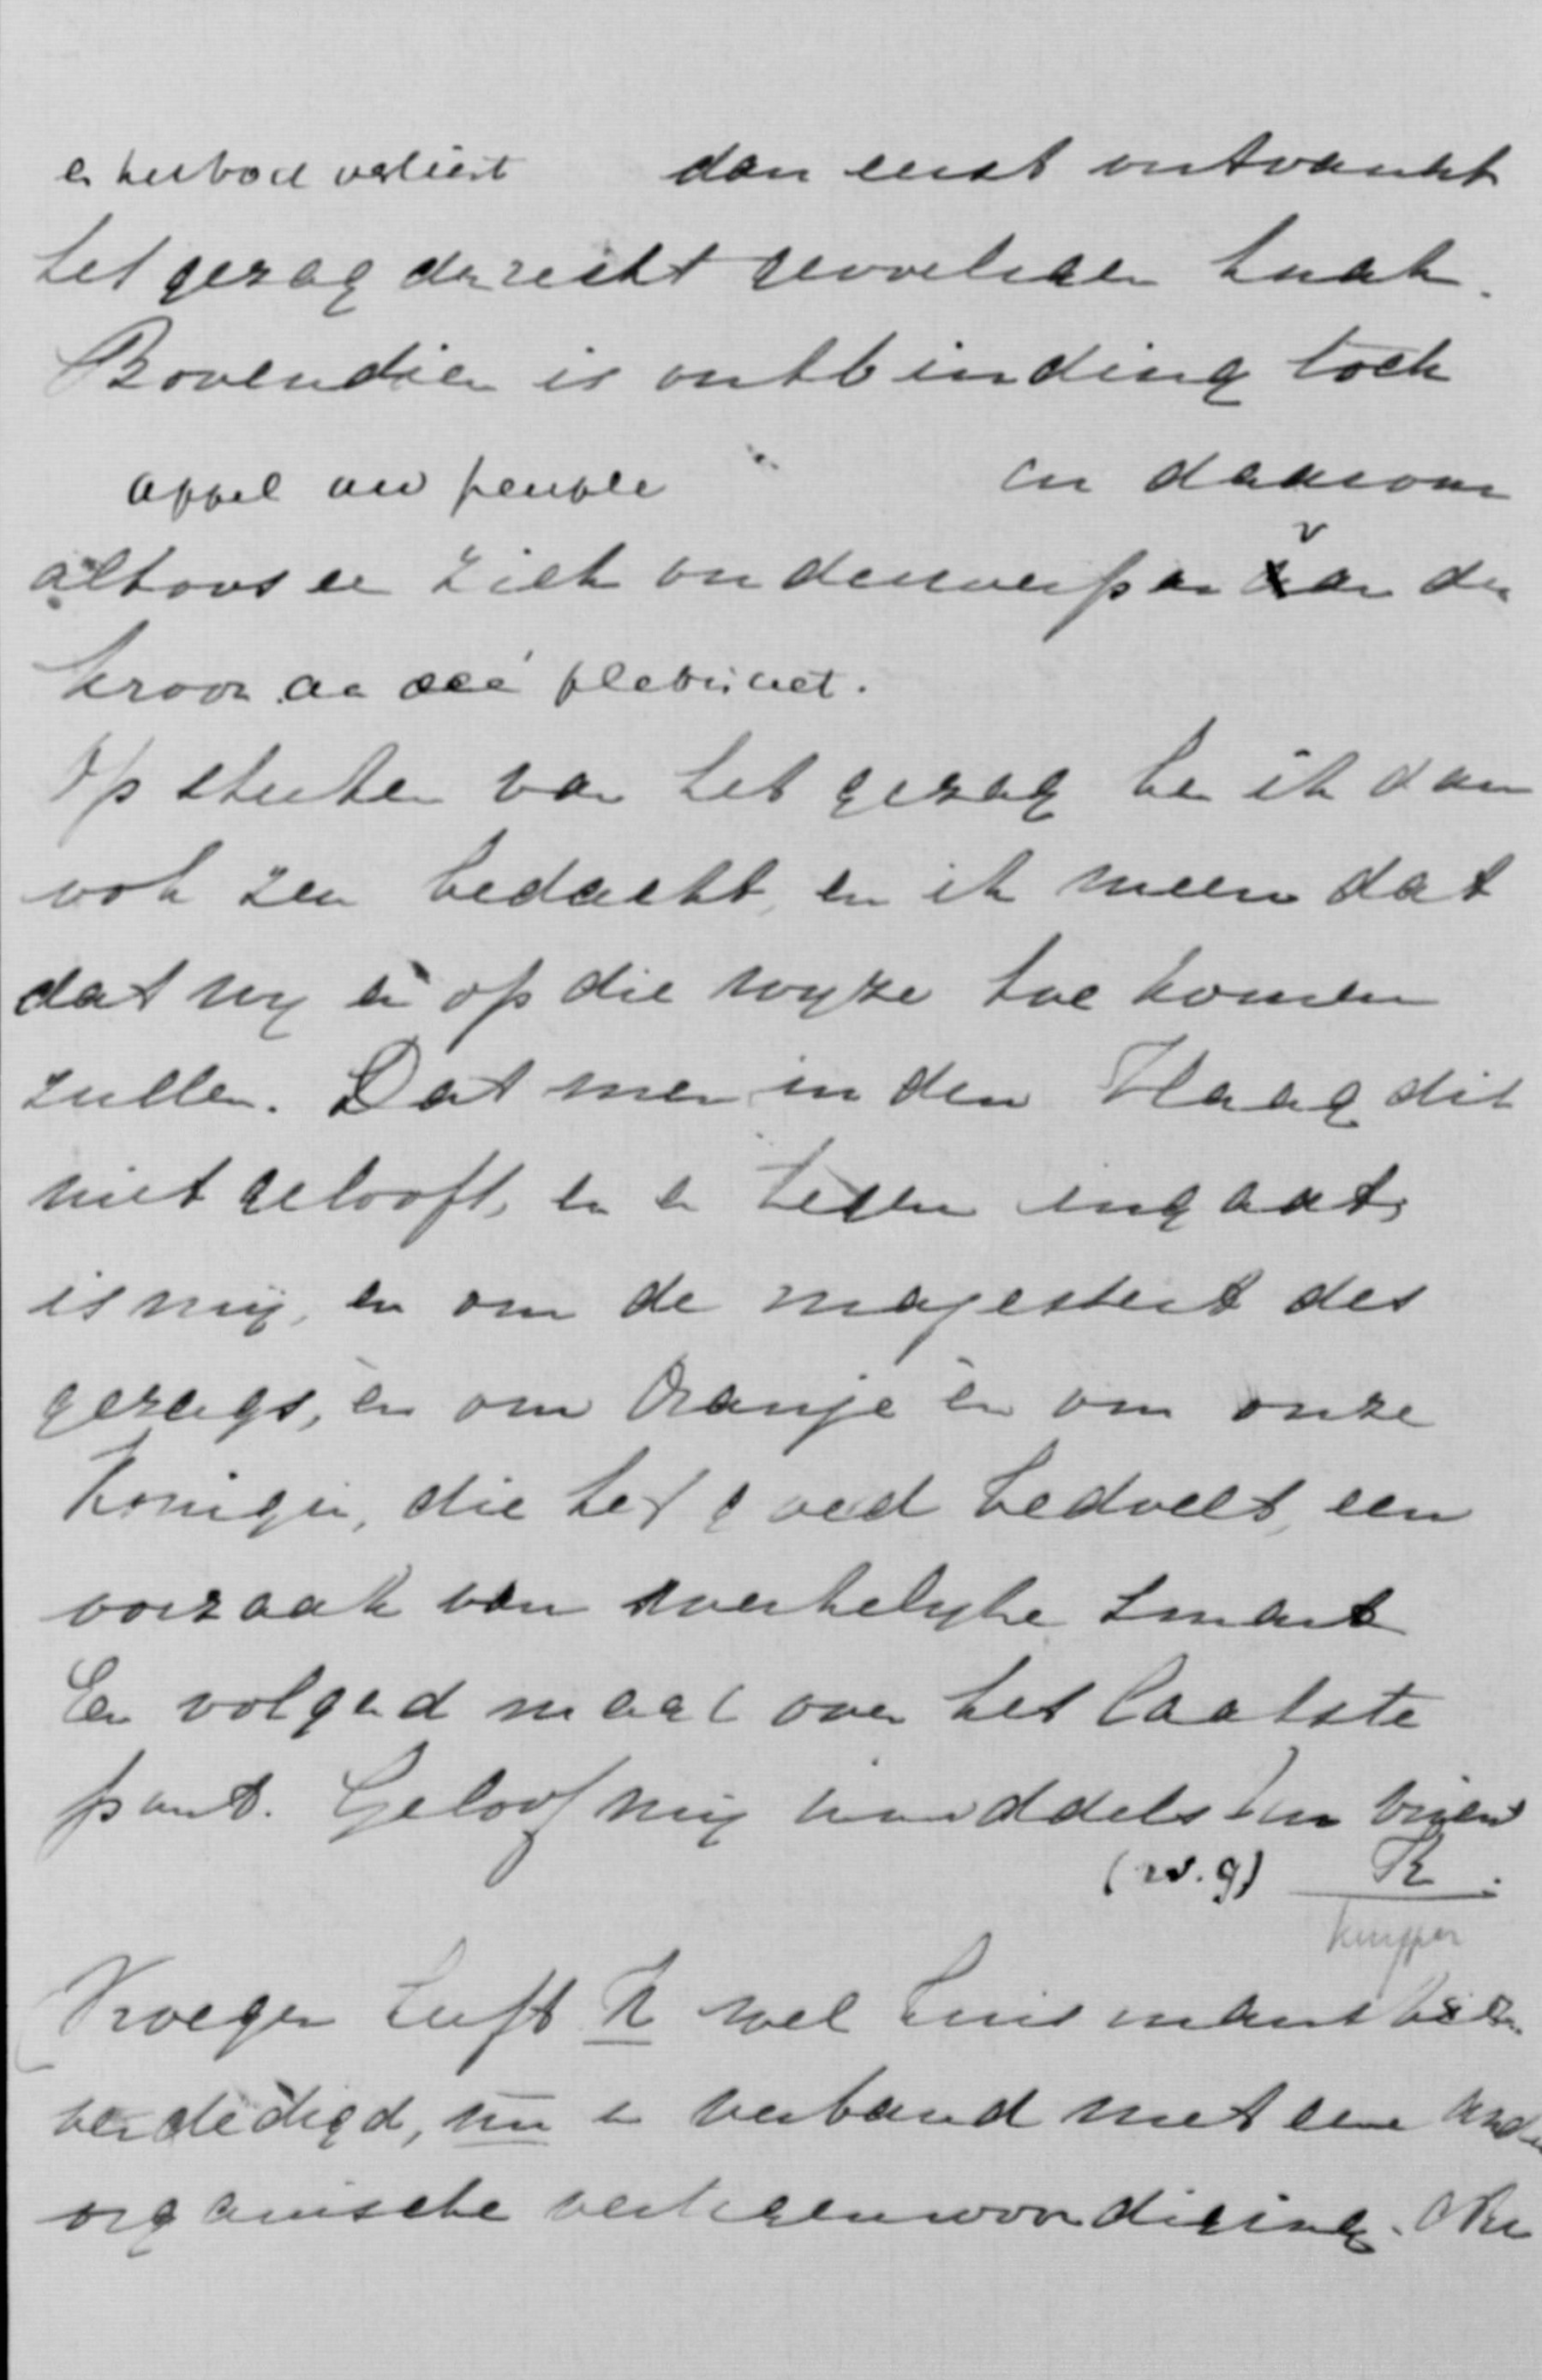 en verliest dan eerst ontvankt
het gezag den recht gevoeligen knak.
Bovendien is ontbinding toch
appel au peuple en daarom
althans een zich onderwerpen van de
kroon aan plebisciet.
Op stuiten van het gezag ben ik dan
ook zeer bedacht, en ik meen dat
dat wy er op die wyze toe komen
zullen. Dat men in den Haag dit
niet gelooft, en er tegen ingaat,
is mij, en om de majesteit des
gezags, en om Oranje en om onze
Konigin, die het goed bedoelt, een
oorzaak van werkelyke smart
En volgend maal over het laatste
punt. Geloof mij inmiddels Uw vriend
(w.g) K.
Kuyper
Vroeger heeft K wel huismanskiesr.
verdedigd, nu in verband met een
organische vertegenwoordiging.